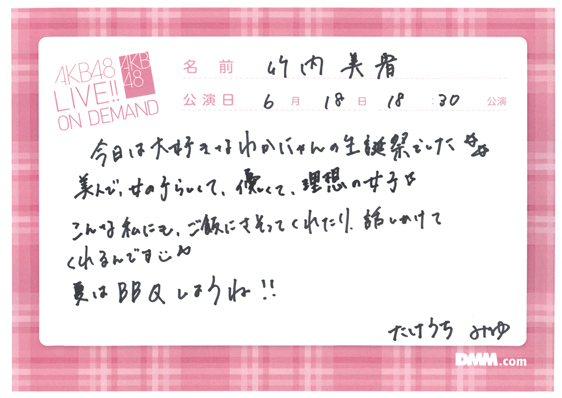 AKB48
LIVE!!
ON DEMAND
AKB
48
名前 竹内美宥
公演日 6月18日 18:30 公演
今日は大好きなわかにゃんの生誕祭でした
美人で、女の子らしくて、優しくて、理想の女子
こんな私にも、ご飯にさそってくれたり、話しかけて
くれるんです
夏はBBQしようね!!
たけうち みゆ
DMM.com